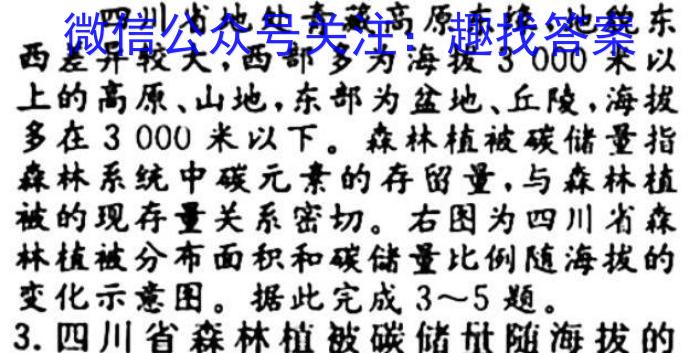 四川省地处青藏高原东缘，地貌东
微信公众号关注：趣找答案
西差异较大，西部多为海拔3 000米以
上的高原、山地，东部为盆地、丘陵，海拔
多在3 000米以下。森林植被碳储量指
森林系统中碳元素的存留量，与森林植
被的现存量关系密切。右图为四川省森
林植被分布面积和碳储量比例随海拔的
变化示意图。据此完成3～5题。
3.四川省森林植被碳储量随海拔的